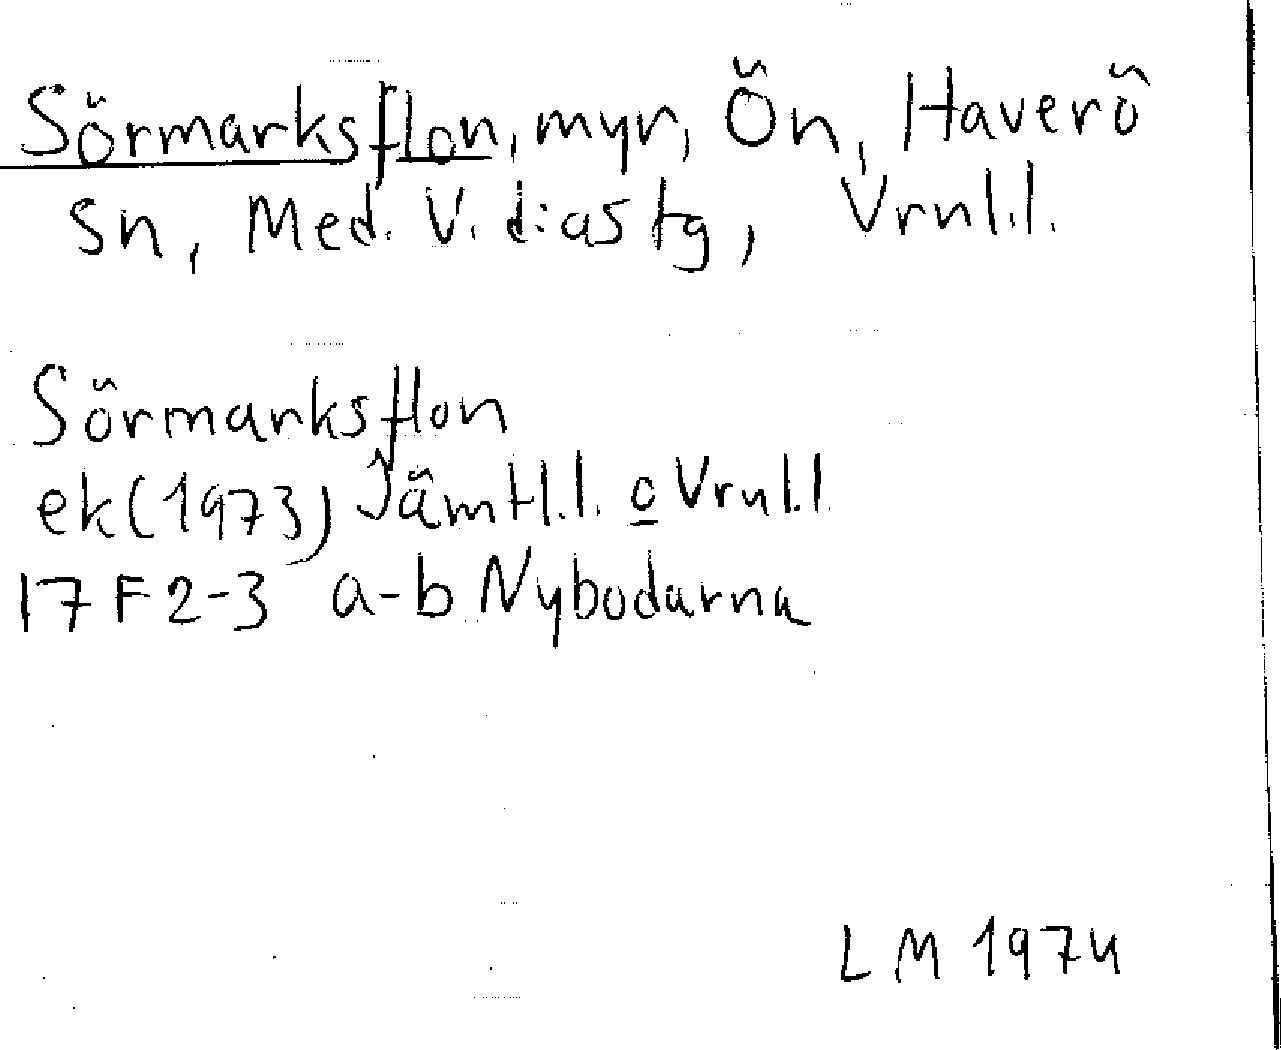 Sörmarksflon, myr, Ön, Haverö
sn, Med. V. d:as tg, Vrnl.l.
Sörmarksflon
ek(1973) Jämtl.l. o Vrnl.l
17 F 2-3 a-b Nybodarna
LM 1974